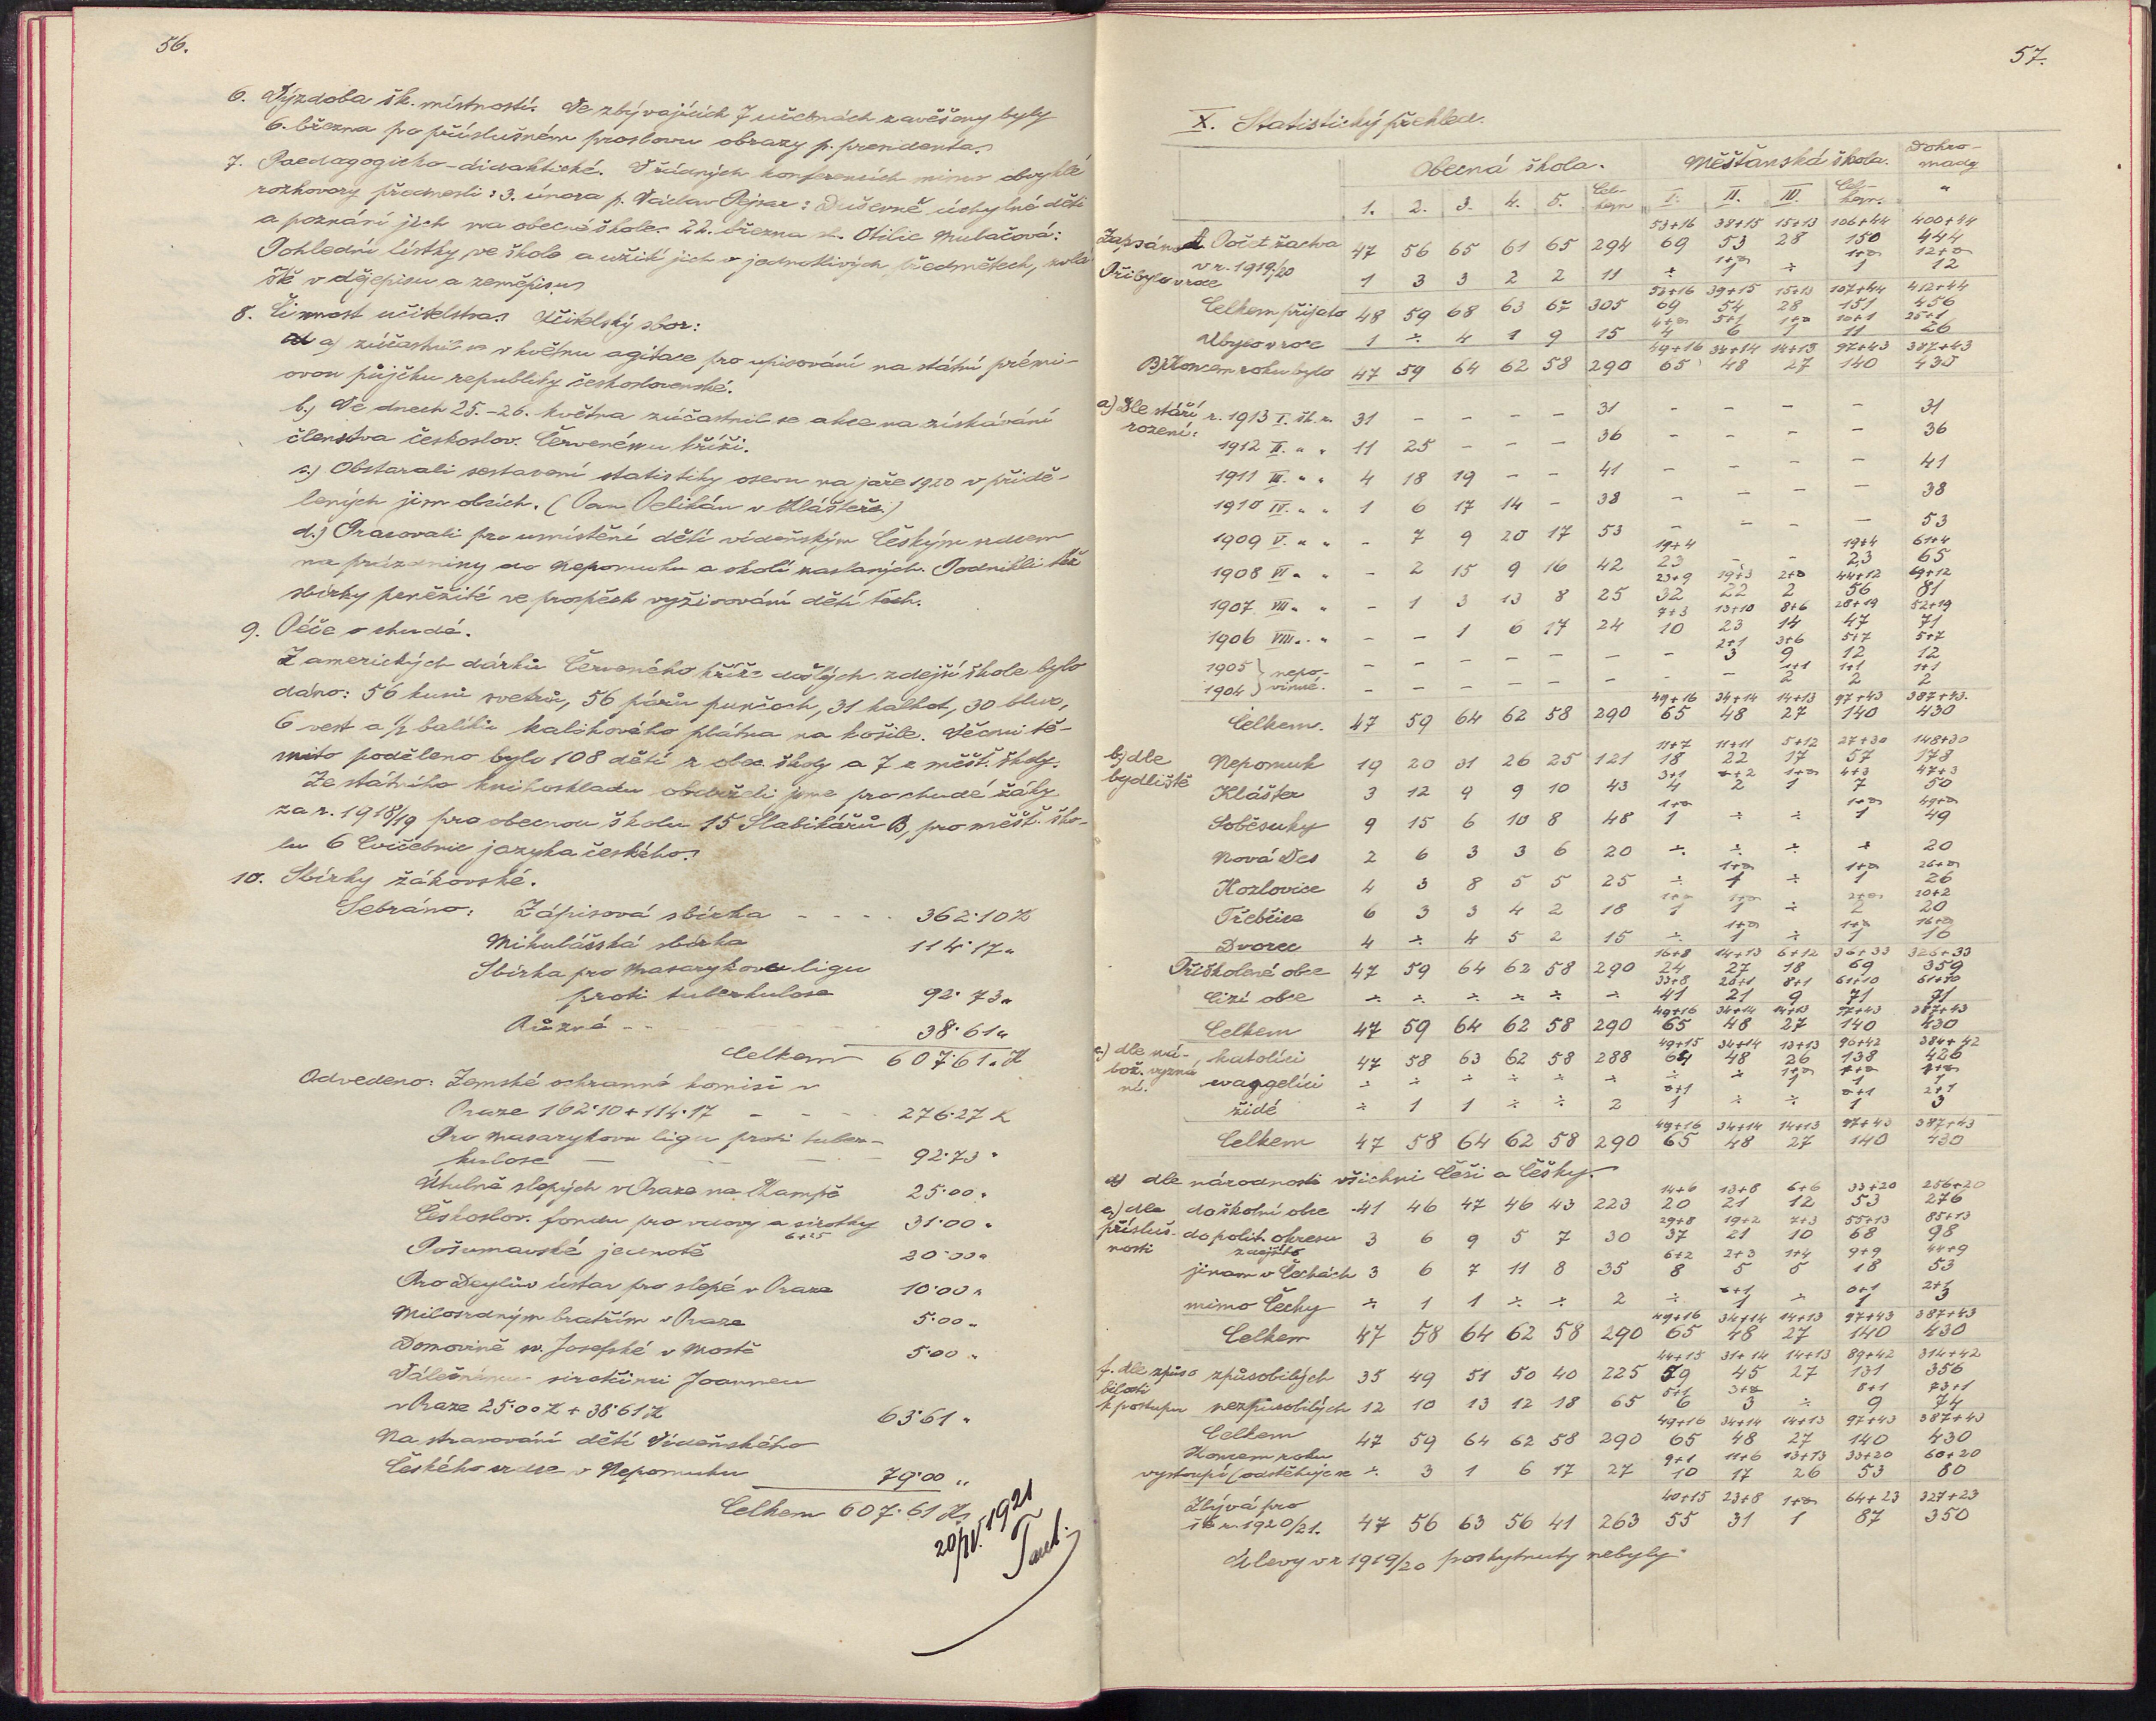 56.
6. Výzdoba šk. místností. Ve zbývajících 7 učebnách zavěšeny byly
6. března po příslušném proslovu obrazy p. presidenta.
7. Paedagogicko-didaktické. V řádných konferencích mimo obvyklé
rozhovory přednesli: 3. února p. Václav Pejsar: Duševně úchylné děti
a poznání jich na obecné škole. 22. března sl. Otilie Mulačová:
Pohlední lístky ve škole a užití jich v jednotlivých předmětech, zvlá-
ště v dějepisu a zeměpisu.
8. Činnost učitelstva. Učitelský sbor:
a) zúčastnil se v květnu agitace pro upisování na státní prémi-
ovou půjčku republiky československé.
b.) Ve dnech 25.-26. května zúčastnil se akce na získávání
členstva českoslov. Červenému kříži.
c.) Obstarali sestavení statistiky osevu na jaře 1920 v přidě-
lených jim obcích. (Pan Pelikán v Klášteře.)
d.) Pracovali pro umístění dětí vídeňským Českým srdcem
na prázdniny do Nepomuku a okolí zaslaných. Podnikli též
sbírky peněžité ve prospěch vyživování dětí těch.
9. Péče o chudé.
Z amerických dárků Červeného kříže došlých zdejší škole bylo
dáno: 56 kusů svetrů, 56 párů punčoch, 31 kalhot, 30 bluz,
6 vest a ½ balíku kalikového plátna na košile. Věcmi tě-
mito poděleno bylo 108 dětí z obec. školy a 7 z měšť. školy.
Ze státního knihoskladu obdrželi jsme pro chudé žáky
za r. 1918/19 pro obecnou školu 15 Slabikářů B, pro měšť. ško-
lu 6 Cvičebnic jazyka českého.
10. Sbírky žákovské.
Sebráno: Zápisová sbírka - - - - 362·10 K
Mikulášská sbírka 114·17 "
Sbírka pro Masarykovu ligu
proti tuberkulose 92·73 "
Různé - - 38·61 "
Celkem 607·61 K
Odvedeno: Zemské ochranné komisi v
Praze 162·10 + 114·17 - - - - 276·27 K
Pro Masarykovu ligu proti tuber-
kulose - - - - 92·73 "
Útulně slepých v Praze na Kampě 25·00 "
Českoslov. fondu pro vdovy a sirotky 31·00 "
6+25
Pošumavské jednotě 20·00 "
Pro Deylův ústav pro slepé v Praze 10·00 "
Milosrdným bratřím v Praze 5·00 "
Domovině sv. Josefské v Mostě 5·00 "
Válečnému sirotčinci Joanneu
v Praze 25·00 K + 38·61 K 63·61 "
Na stravování dětí Vídeňského
Českého srdce v Nepomuku 79·00 "
Celkem 607·61 K
20/IV. 1921
57.
X. Statistický přehled.
Obecná škola. Měšťanská škola. Dohro-
mady
1. 2. 3. 4. 5. Cel-
kem I. II. III. Cel-
kem. "
53+16 38+15 15+13 106+44 400+44
Zapsáno A Počet žactva 47 56 65 61 65 294 69 53 28 150 444
v r. 1919/20 1+0 1+0 12+0
Přibylo v roce 1 3 3 2 2 11 ÷ 1 ÷ 1 12
53+16 39+15 15+13 107+44 412+44
Celkem přijato 48 59 68 63 67 305 69 54 28 151 456
4+0 5+1 1+0 10+1 25+1
Ubylo v roce 1 ÷ 4 1 9 15 4 6 1 11 26
49+16 34+14 14+13 97+43 387+43
B) Koncem roku bylo 47 59 64 62 58 290 65 48 27 140 430
a) Dle stáří r. 1913 I. šk. r. 31 - - - - 31 - - - - 31
rození: 1912 II. " " 11 25 - - - 36 - - - - 36
1911 III. " " 4 18 19 - - 41 - - - - 41
1910 IV. " " 1 6 17 14 - 38 - - - - 38
1909 V. " " - 7 9 20 17 53 - - - - 53
19+4 19+4 61+4
1908 VI. " " - 2 15 9 16 42 23 - - 23 65
23+9 19+3 2+0 44+12 69+12
1907. VII. " " - 1 3 13 8 25 32 22 2 56 81
7+3 13+10 8+6 28+19 52+19
1906 VIII. " " - - 1 6 17 24 10 23 14 47 71
2+1 3+6 5+7 5+7
1905 } nepo- - - - - - - - 3 9 12 12
1+1 1+1 1+1
1904 } vinné. - - - - - - - - 2 2 2
49+16 34+14 14+13 97+43 387+43.
Celkem. 47 59 64 62 58 290 65 48 27 140 430
11+7 11+11 5+12 27+30 148+30
b) dle Nepomuk 19 20 31 26 25 121 18 22 17 57 178
bydliště 3+1 0+2 1+0 4+3 47+3
Klášter 3 12 9 9 10 43 4 2 1 7 50
1+0 1+0 49+0
Soběsuky 9 15 6 10 8 48 1 ÷ ÷ 1 49
Nová Ves 2 6 3 3 6 20 ÷ ÷ ÷ ÷ 20
1+0 1+0 26+0
Kozlovice 4 3 8 5 5 25 ÷ 1 ÷ 1 26
1+0 1+0 2+0 20+2
Třebčice 6 3 3 4 2 18 1 1 ÷ 2 20
1+0 1+0 16+0
Dvorec 4 ÷ 4 5 2 15 ÷ 1 ÷ 1 16
16+8 14+13 6+12 36+33 326+33
Přiškolené obce 47 59 64 62 58 290 24 27 18 69 359
33+8 20+1 8+1 61+10 61+10
Cizí obce ÷ ÷ ÷ ÷ ÷ ÷ 41 21 9 71 71
49+16 34+14 14+13 97+43 387+43
Celkem 47 59 64 62 58 290 65 48 27 140 430
49+15 34+14 13+13 96+42 384+42
c.) dle ná- katolíci 47 58 63 62 58 288 64 48 26 138 426
bož. vyzná 1+0 1+0 1+0
ní. evangelíci ÷ ÷ ÷ ÷ ÷ ÷ ÷ ÷ 1 1 1
0+1 0+1 2+1
židé ÷ 1 1 ÷ ÷ 2 1 ÷ ÷ 1 3
49+16 34+14 14+13 97+43 387+43
Celkem 47 58 64 62 58 290 65 48 27 140 430
d) dle národnosti všichni Češi a Češky.
14+6 13+8 6+6 33+20 256+20
e.) dle do školní obce 41 46 47 46 43 223 20 21 12 53 276
29+8 19+2 7+3 55+13 85+13
přísluš- do polit. okresu 3 6 9 5 7 30 37 21 10 68 98
nosti zdejšího 6+2 2+3 1+4 9+9 44+9
jinam v Čechách 3 6 7 11 8 35 8 5 5 18 53
0+1 0+1 2+1
mimo Čechy ÷ 1 1 ÷ ÷ 2 ÷ 1 ÷ 1 3
49+16 34+14 14+13 97+43 387+43
Celkem 47 58 64 62 58 290 65 48 27 140 430
44+15 31+14 14+13 89+42 314+42
f. dle způso způsobilých 35 49 51 50 40 225 59 45 27 131 356
bilosti 5+1 3+0 8+1 73+1
k postupu nezpůsobilých 12 10 13 12 18 65 6 3 ÷ 9 74
49+16 34+14 14+13 97+43 387+43
Celkem 47 59 64 62 58 290 65 48 27 140 430
Koncem roku 9+1 11+6 13+13 33+20 60+20
vystoupí (odstěhuje se ÷ 3 1 6 17 27 10 17 26 53 80
Zbývá pro 40+15 23+8 1+0 64+23 327+23
šk. r. 1920/21. 47 56 63 56 41 263 55 31 1 87 350
Úlevy v r 1919/20 poskytnuty nebyly.